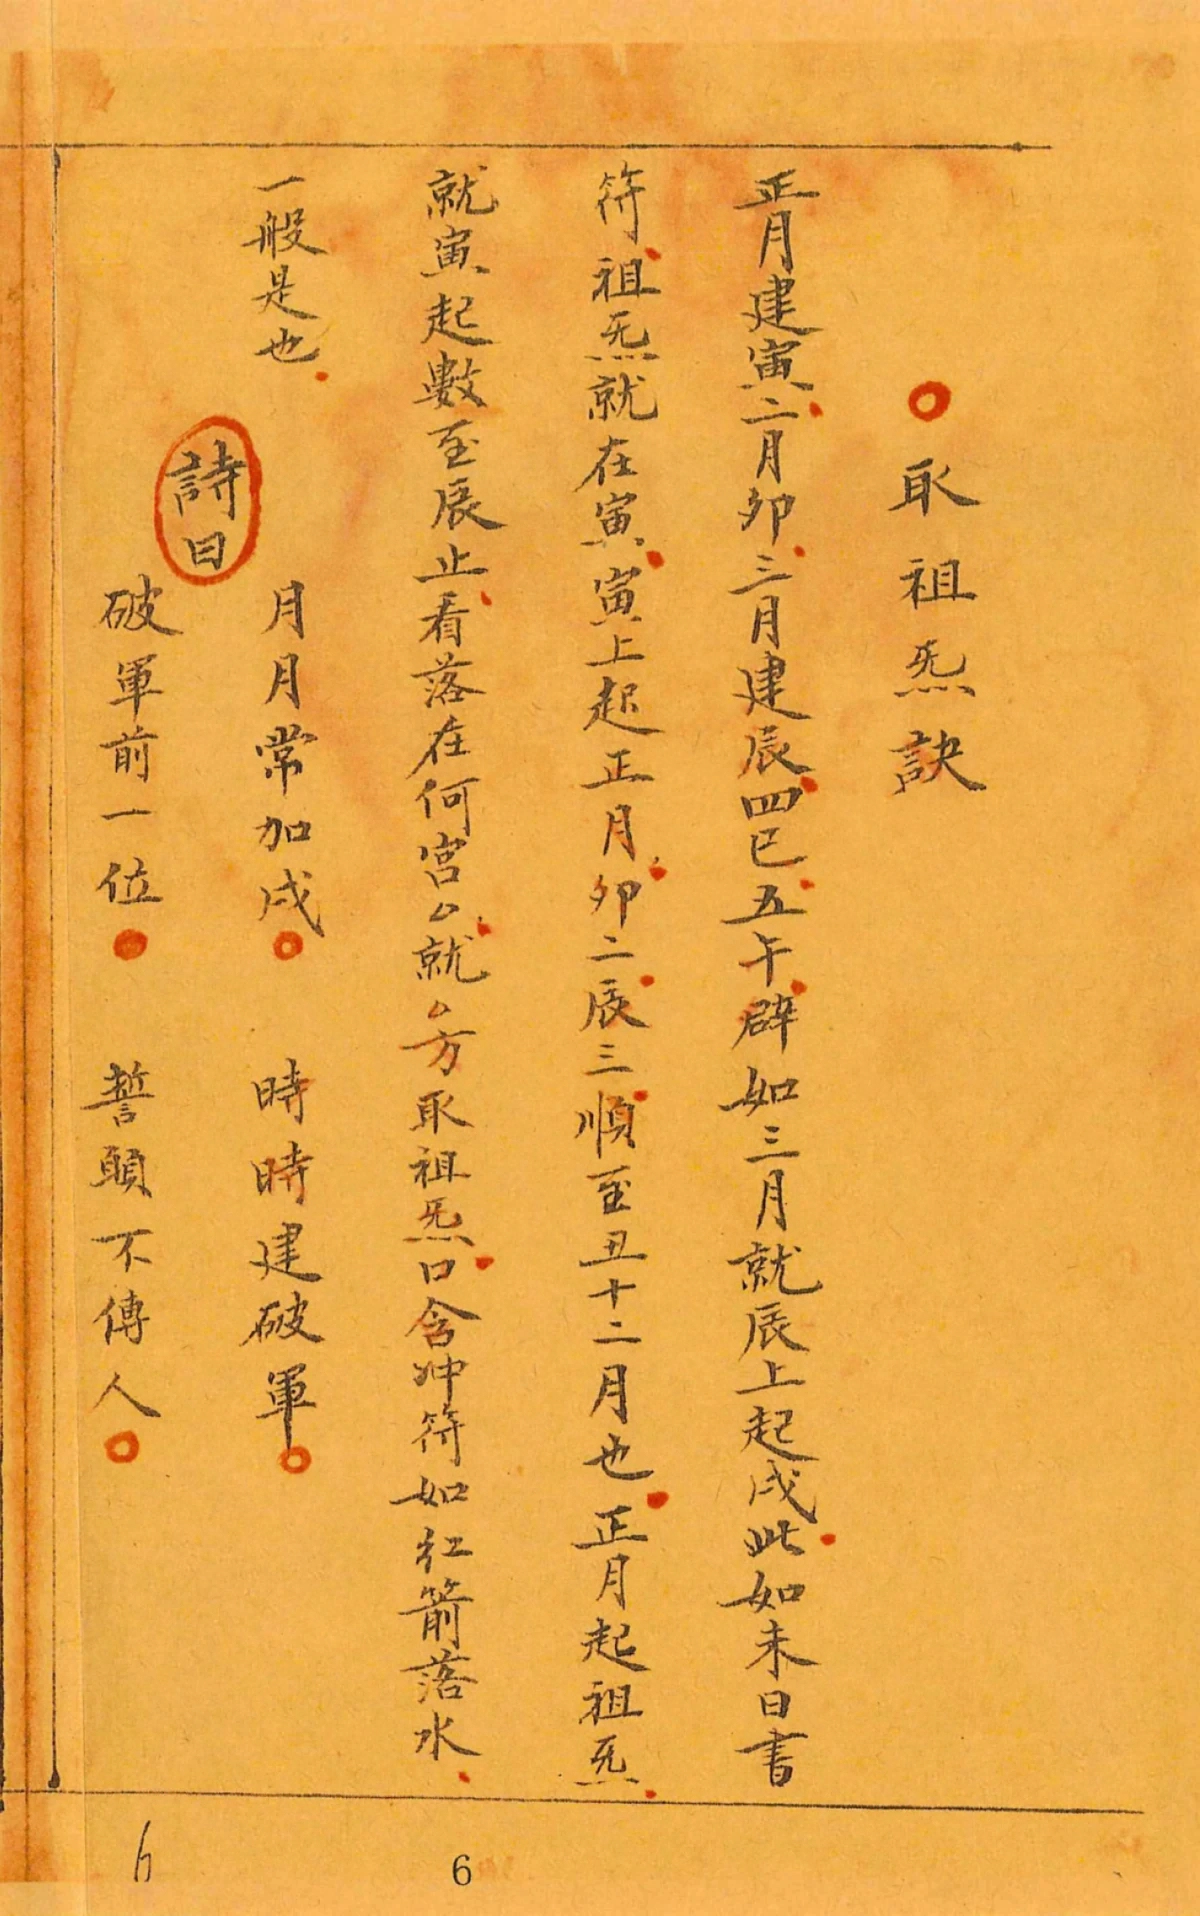 取祖炁訣
正月建寅二月卯三月建辰四巳五午辟如三月就辰上起戌此如未日書
符祖炁就在寅寅上起正月卯二辰三順至丑十二月也正月起祖炁
就寅起數至辰止看落在何宮〻就〻方取祖炁口含冲符如紅箭落水
一般是也
詩曰
月月常加戌 時時建破軍
破軍前一位 誓願不傳人
6
6